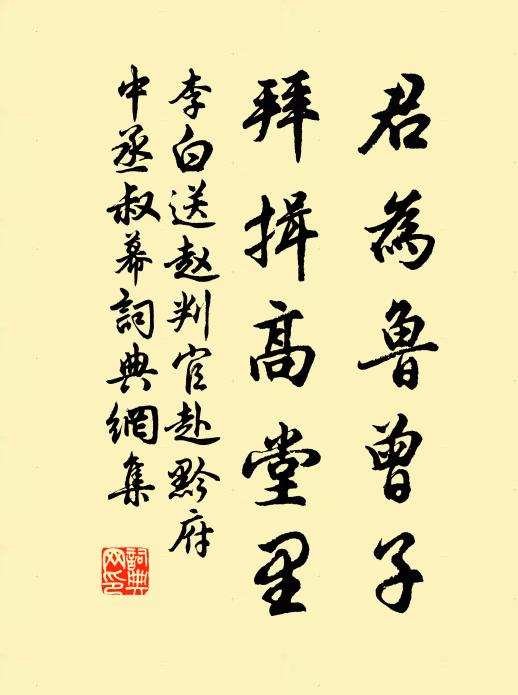 君為魯曾子
拜揖高堂里
李白送赵判官赴黔府
中丞叔幕詞典網集
詞典网印